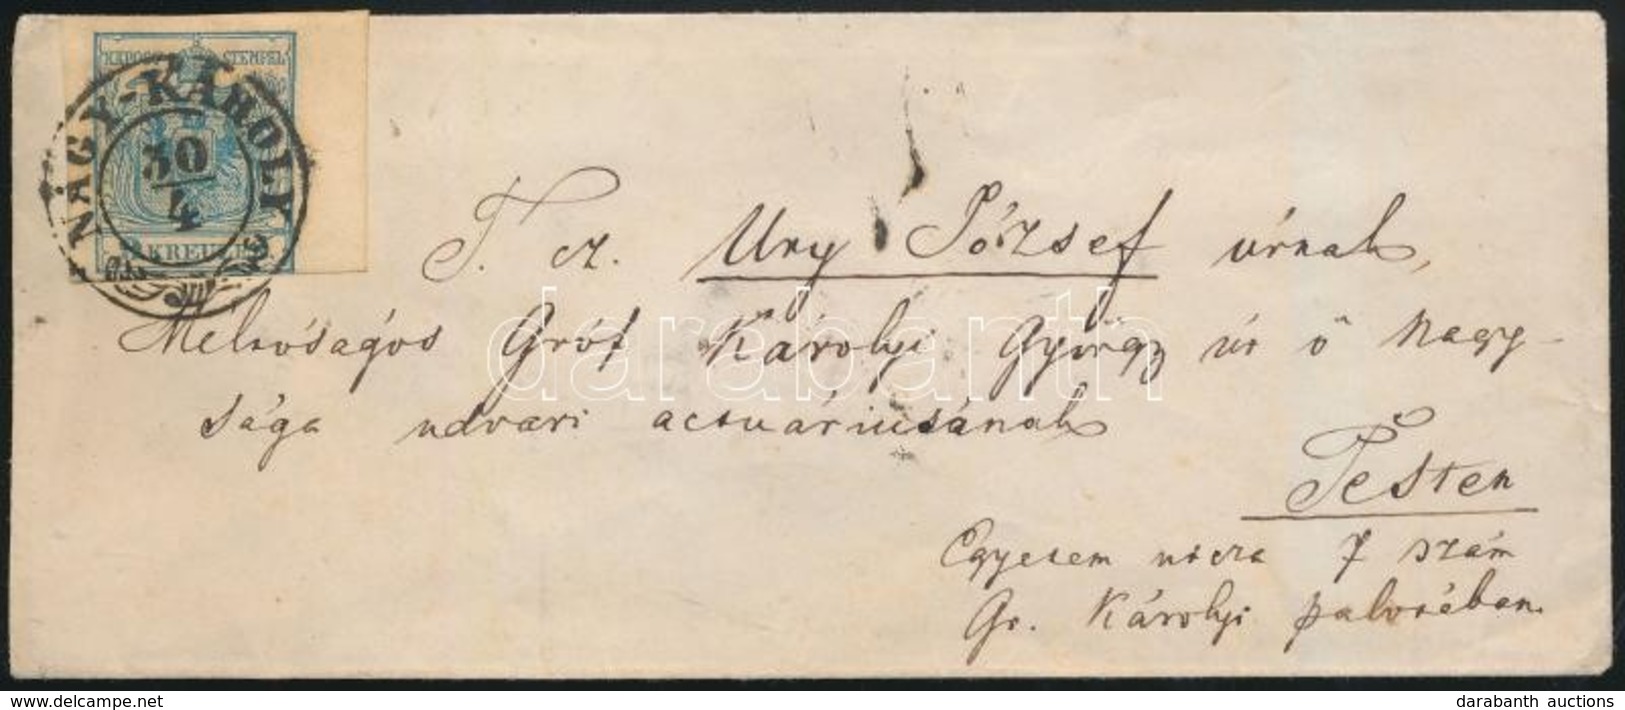 K.K.POST-STEMPEL
NAGY-KÁROLY
30
4
9 KREUZER
T. cz. Ury József úrnak,
Méltóságos Gróf Károlyi György úr ő Nagy-
sága udvari actuáriusának
Pesten
Egyetem utcza 7 szám
Gr. Károlyi palotában.
darabanth
darabanth auctions